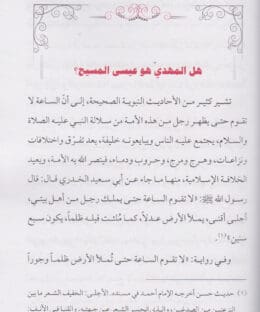 هل المهديّ هو عيسى المسيح؟
تشير كثير من الأحاديث النبوية الصحيحة، إلى أنّ الساعة لا
تقوم حتى يظهر رجل من هذه الأمة من سلالة النبي عليه الصلاة
والسلام، يجتمع عليه الناس ويبايعونه خليفة، بعد تفرّق واختلافات
ونزاعات، وهرج ومرج، وحروب ودماء، فينصر الله به الأمة، ويعيد
الخلافة الإسلامية، منها ما جاء عن أبي سعيد الخدري قال: قال
رسول الله ﷺ: «لا تقوم الساعة حتى يملك رجل من أهل بيتي،
أجلى أقنى، يملأ الأرض عدلاً، كما مُلئت قبله ظلماً، يكون سبع
سنين»(١).
وفي رواية: «لا تقوم الساعة حتى تُملأ الأرض ظلماً وجوراً
(١) حديث حسن أخرجه الإمام أحمد في مسنده. الأجلى: الخفيف الشعر ما بين
النزعتين من الصدغين، الذي انحسر الشعر عن جبهته، والقنا في الأنف